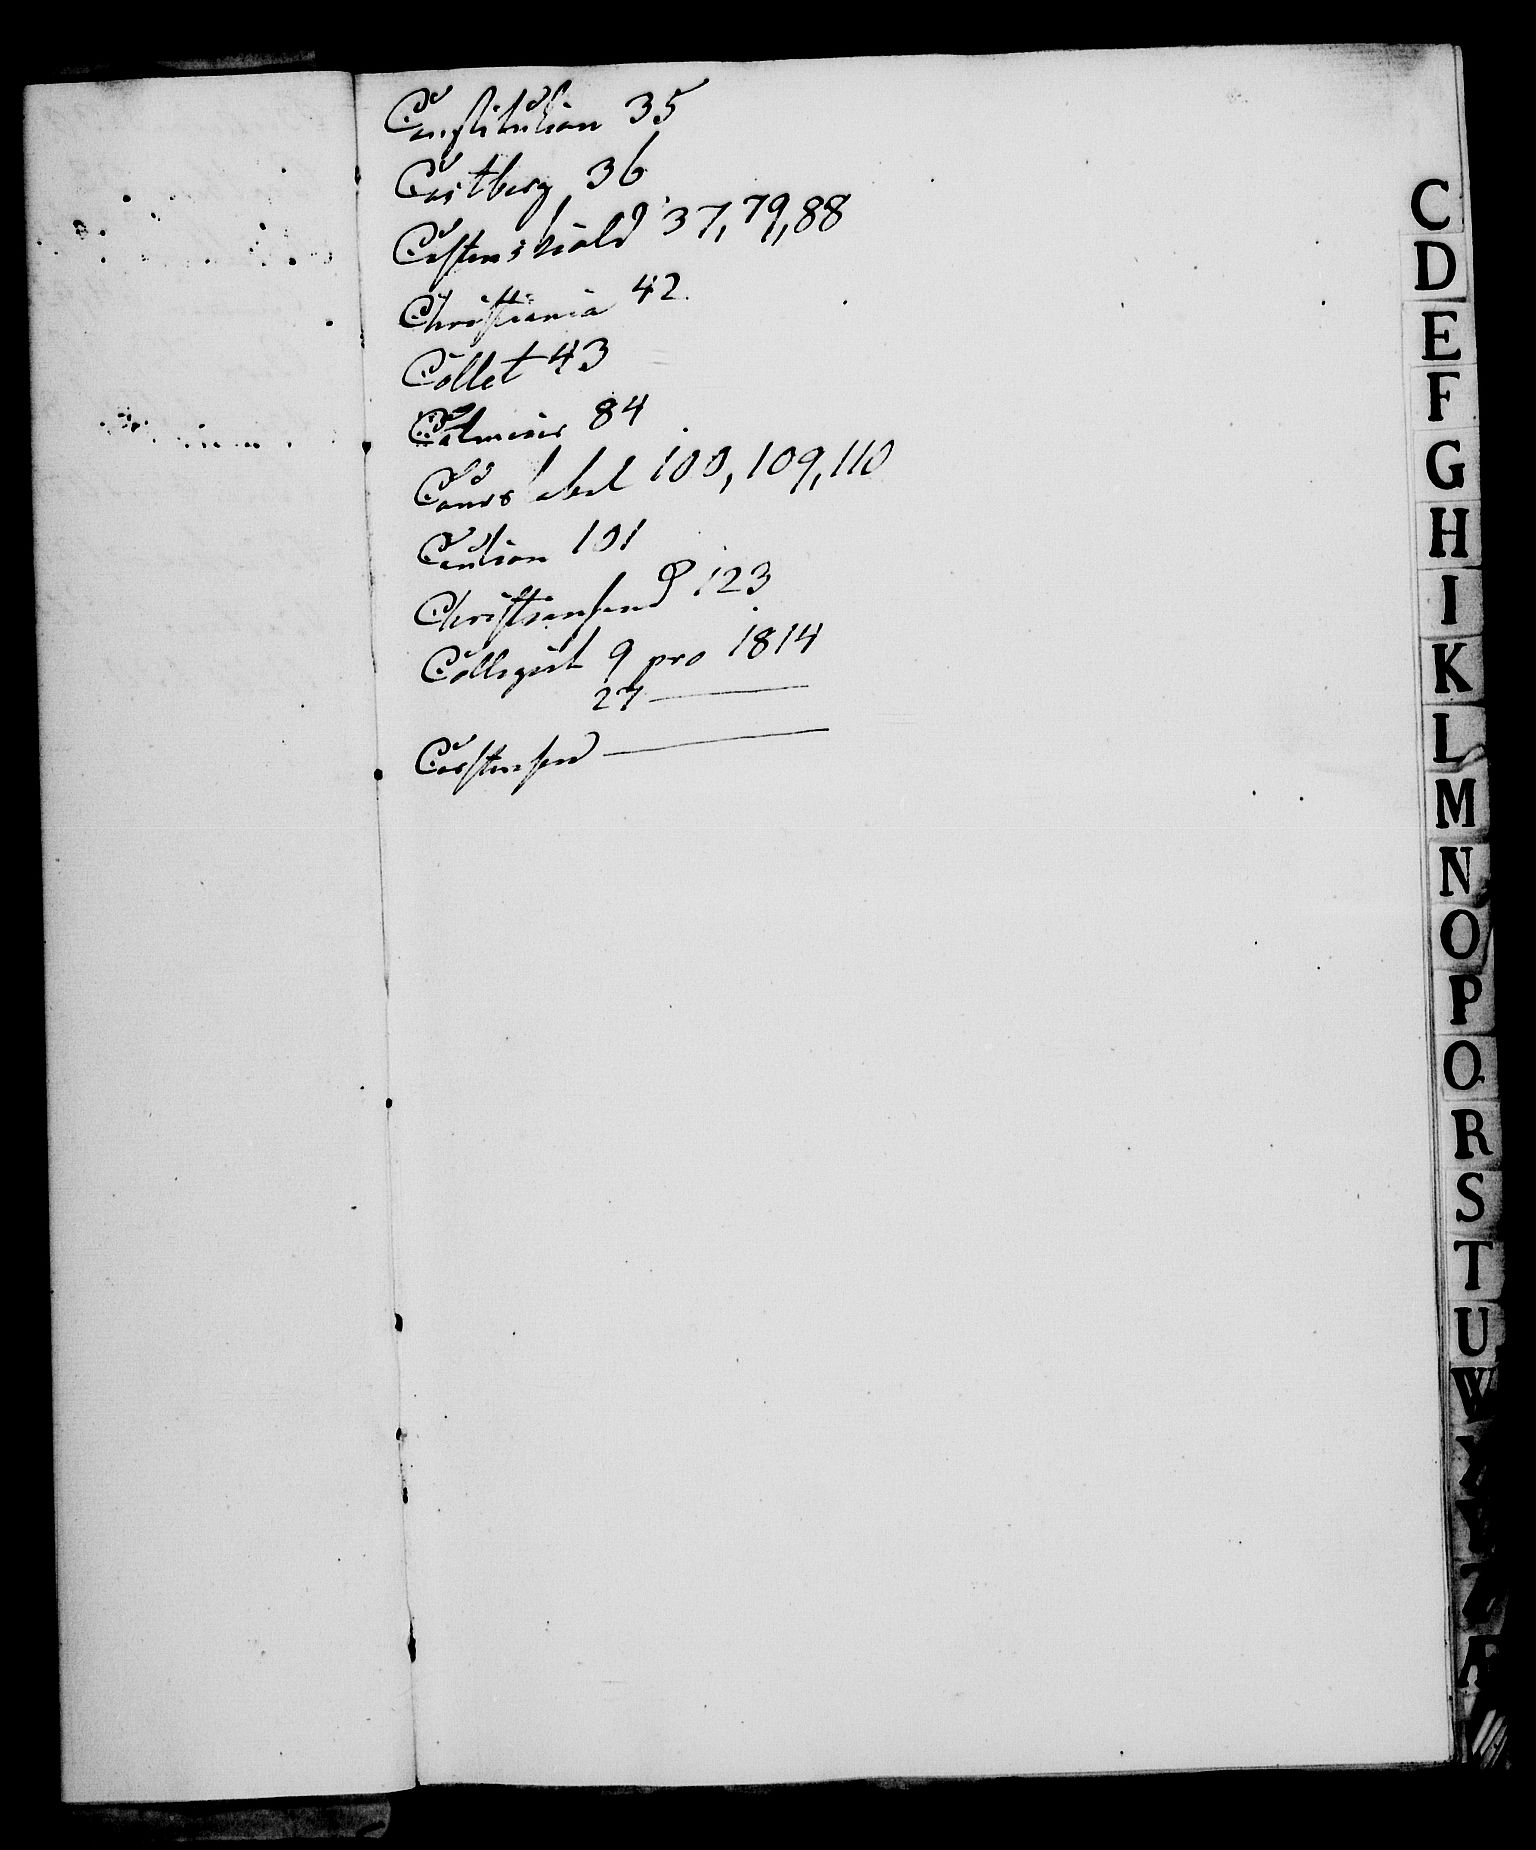 Constitution 35
Castberg 36
Castenskiold 37, 79, 88
Christiania 42.
Collet 43
84
Cours 100, 109, 110
Caution 101
Christiansand 123
Collegiet 9 pro 1814
27 ———
Carstensen ———
C
D
E
F
G
H
I
K
L
M
N
O
P
Q
R
S
T
U
W